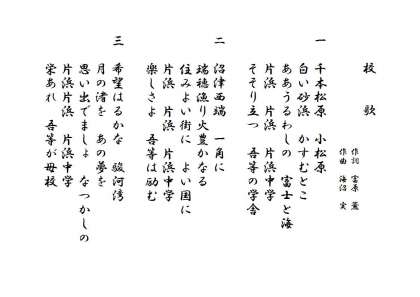 校歌
作詞 富原 薫
作曲 海沼 実
一 千本松原 小松原
白い砂浜 かすむとこ
ああうるわしの 富士と海
片浜 片浜 片浜中学
そそり立つ 吾等の学舎
二 沼津西端 一角に
瑞穂漁り火豊かなる
住みよい街に よい国に
片浜 片浜 片浜中学
楽しさよ 吾等は励む
三 希望はるかな 駿河湾
月の渚を あの夢を
思い出でましょ なつかしの
片浜片浜 片浜中学
栄あれ 吾等が母校